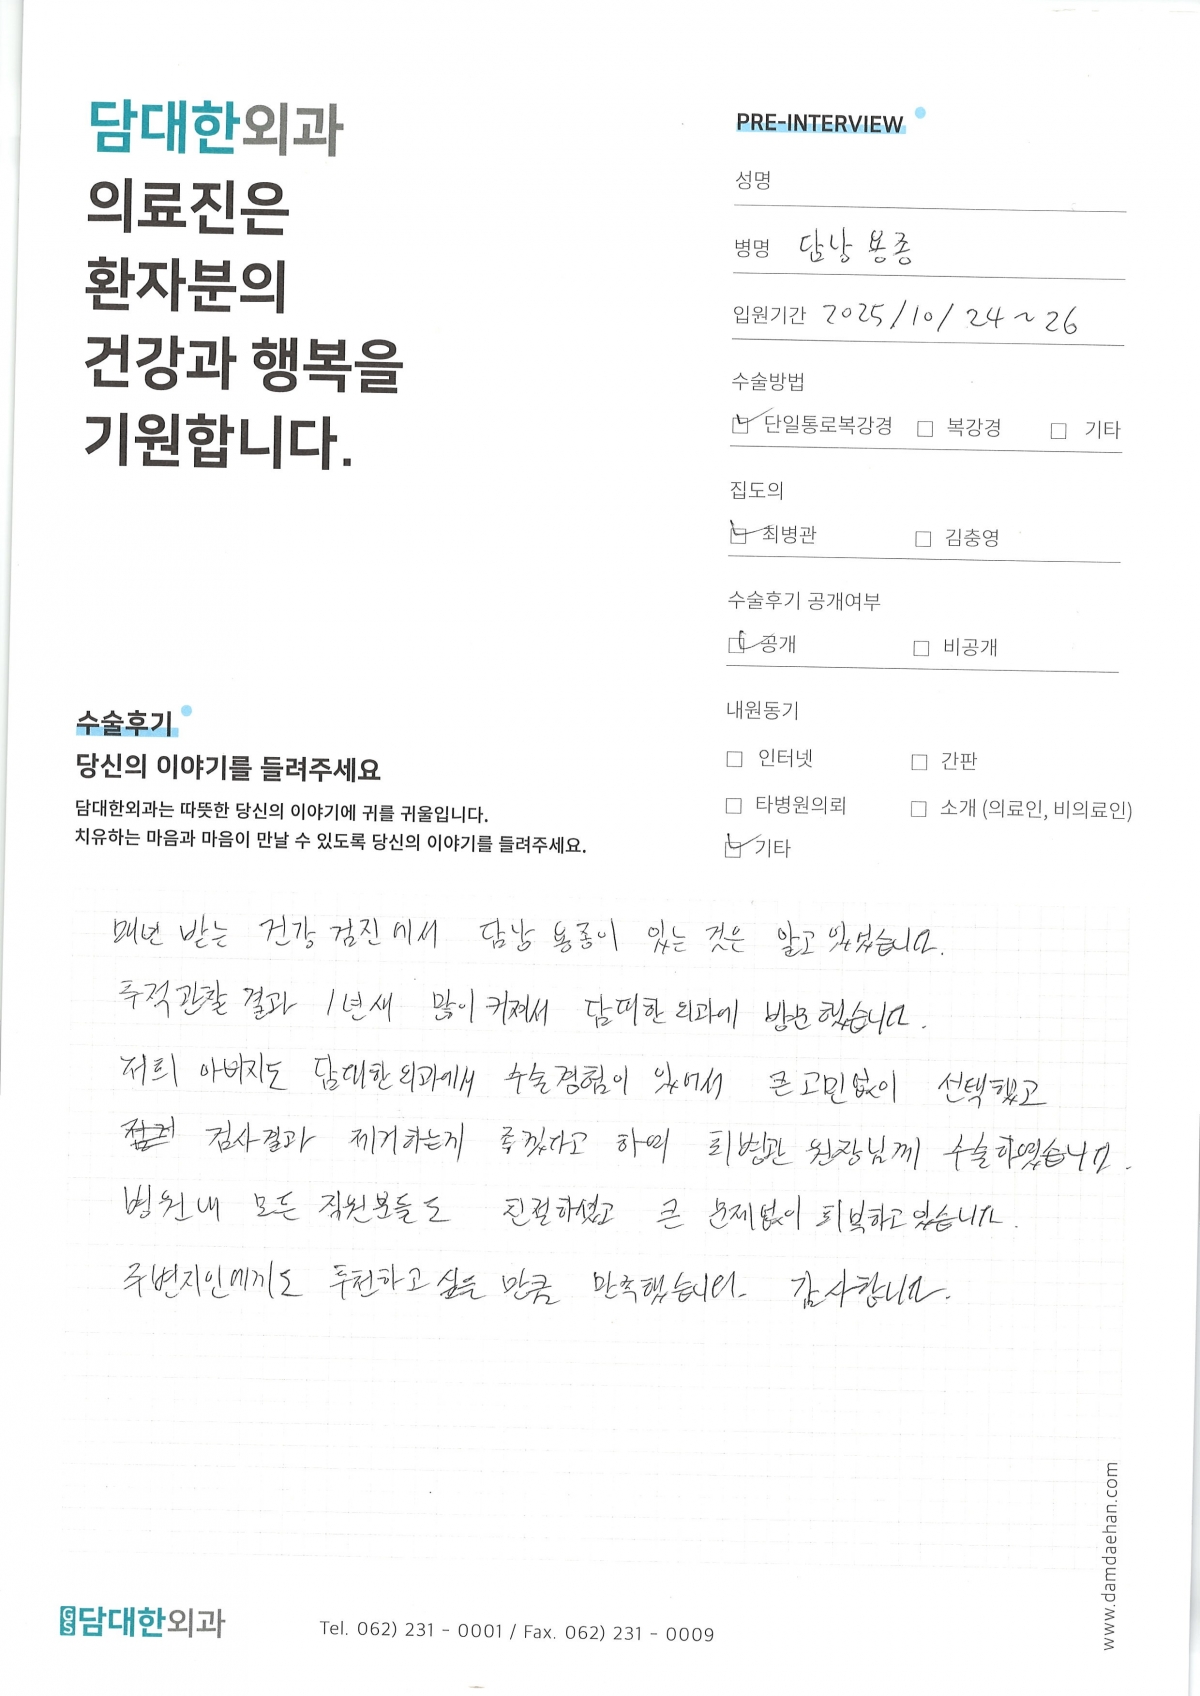 담대한외과
의료진은
환자분의
건강과 행복을
기원합니다.
PRE-INTERVIEW
성명
병명 담낭 용종
입원기간 2025/10/24~26
수술방법
단일통로복강경 복강경 기타
집도의
최병관 김충영
수술후기 공개여부
공개 비공개
내원동기
인터넷 간판
타병원의뢰 소개 (의료인, 비의료인)
기타
수술후기
당신의 이야기를 들려주세요
담대한외과는 따뜻한 당신의 이야기에 귀를 귀울입니다.
치유하는 마음과 마음이 만날 수 있도록 당신의 이야기를 들려주세요.
매년 받는 건강 검진에서 담낭 용종이 있는 것은 알고 있었습니다.
추적관찰 결과 1년새 많이 커져서 담대한 외과에 방문했습니다.
저희 아버지도 담대한 외과에서 수술경험이 있어서 큰 고민없이 선택했고
검사결과 제거하는게 좋겠다고 하여 최병관 원장님께 수술하였습니다.
병원내 모든 직원분들도 친절하셨고 큰 문제없이 회복하고 있습니다.
주변지인에게도 추천하고 싶을 만큼 만족했습니다. 감사합니다.
GS 담대한외과
Tel. 062) 231 - 0001 / Fax. 062) 231 - 0009
www.damdaehan.com